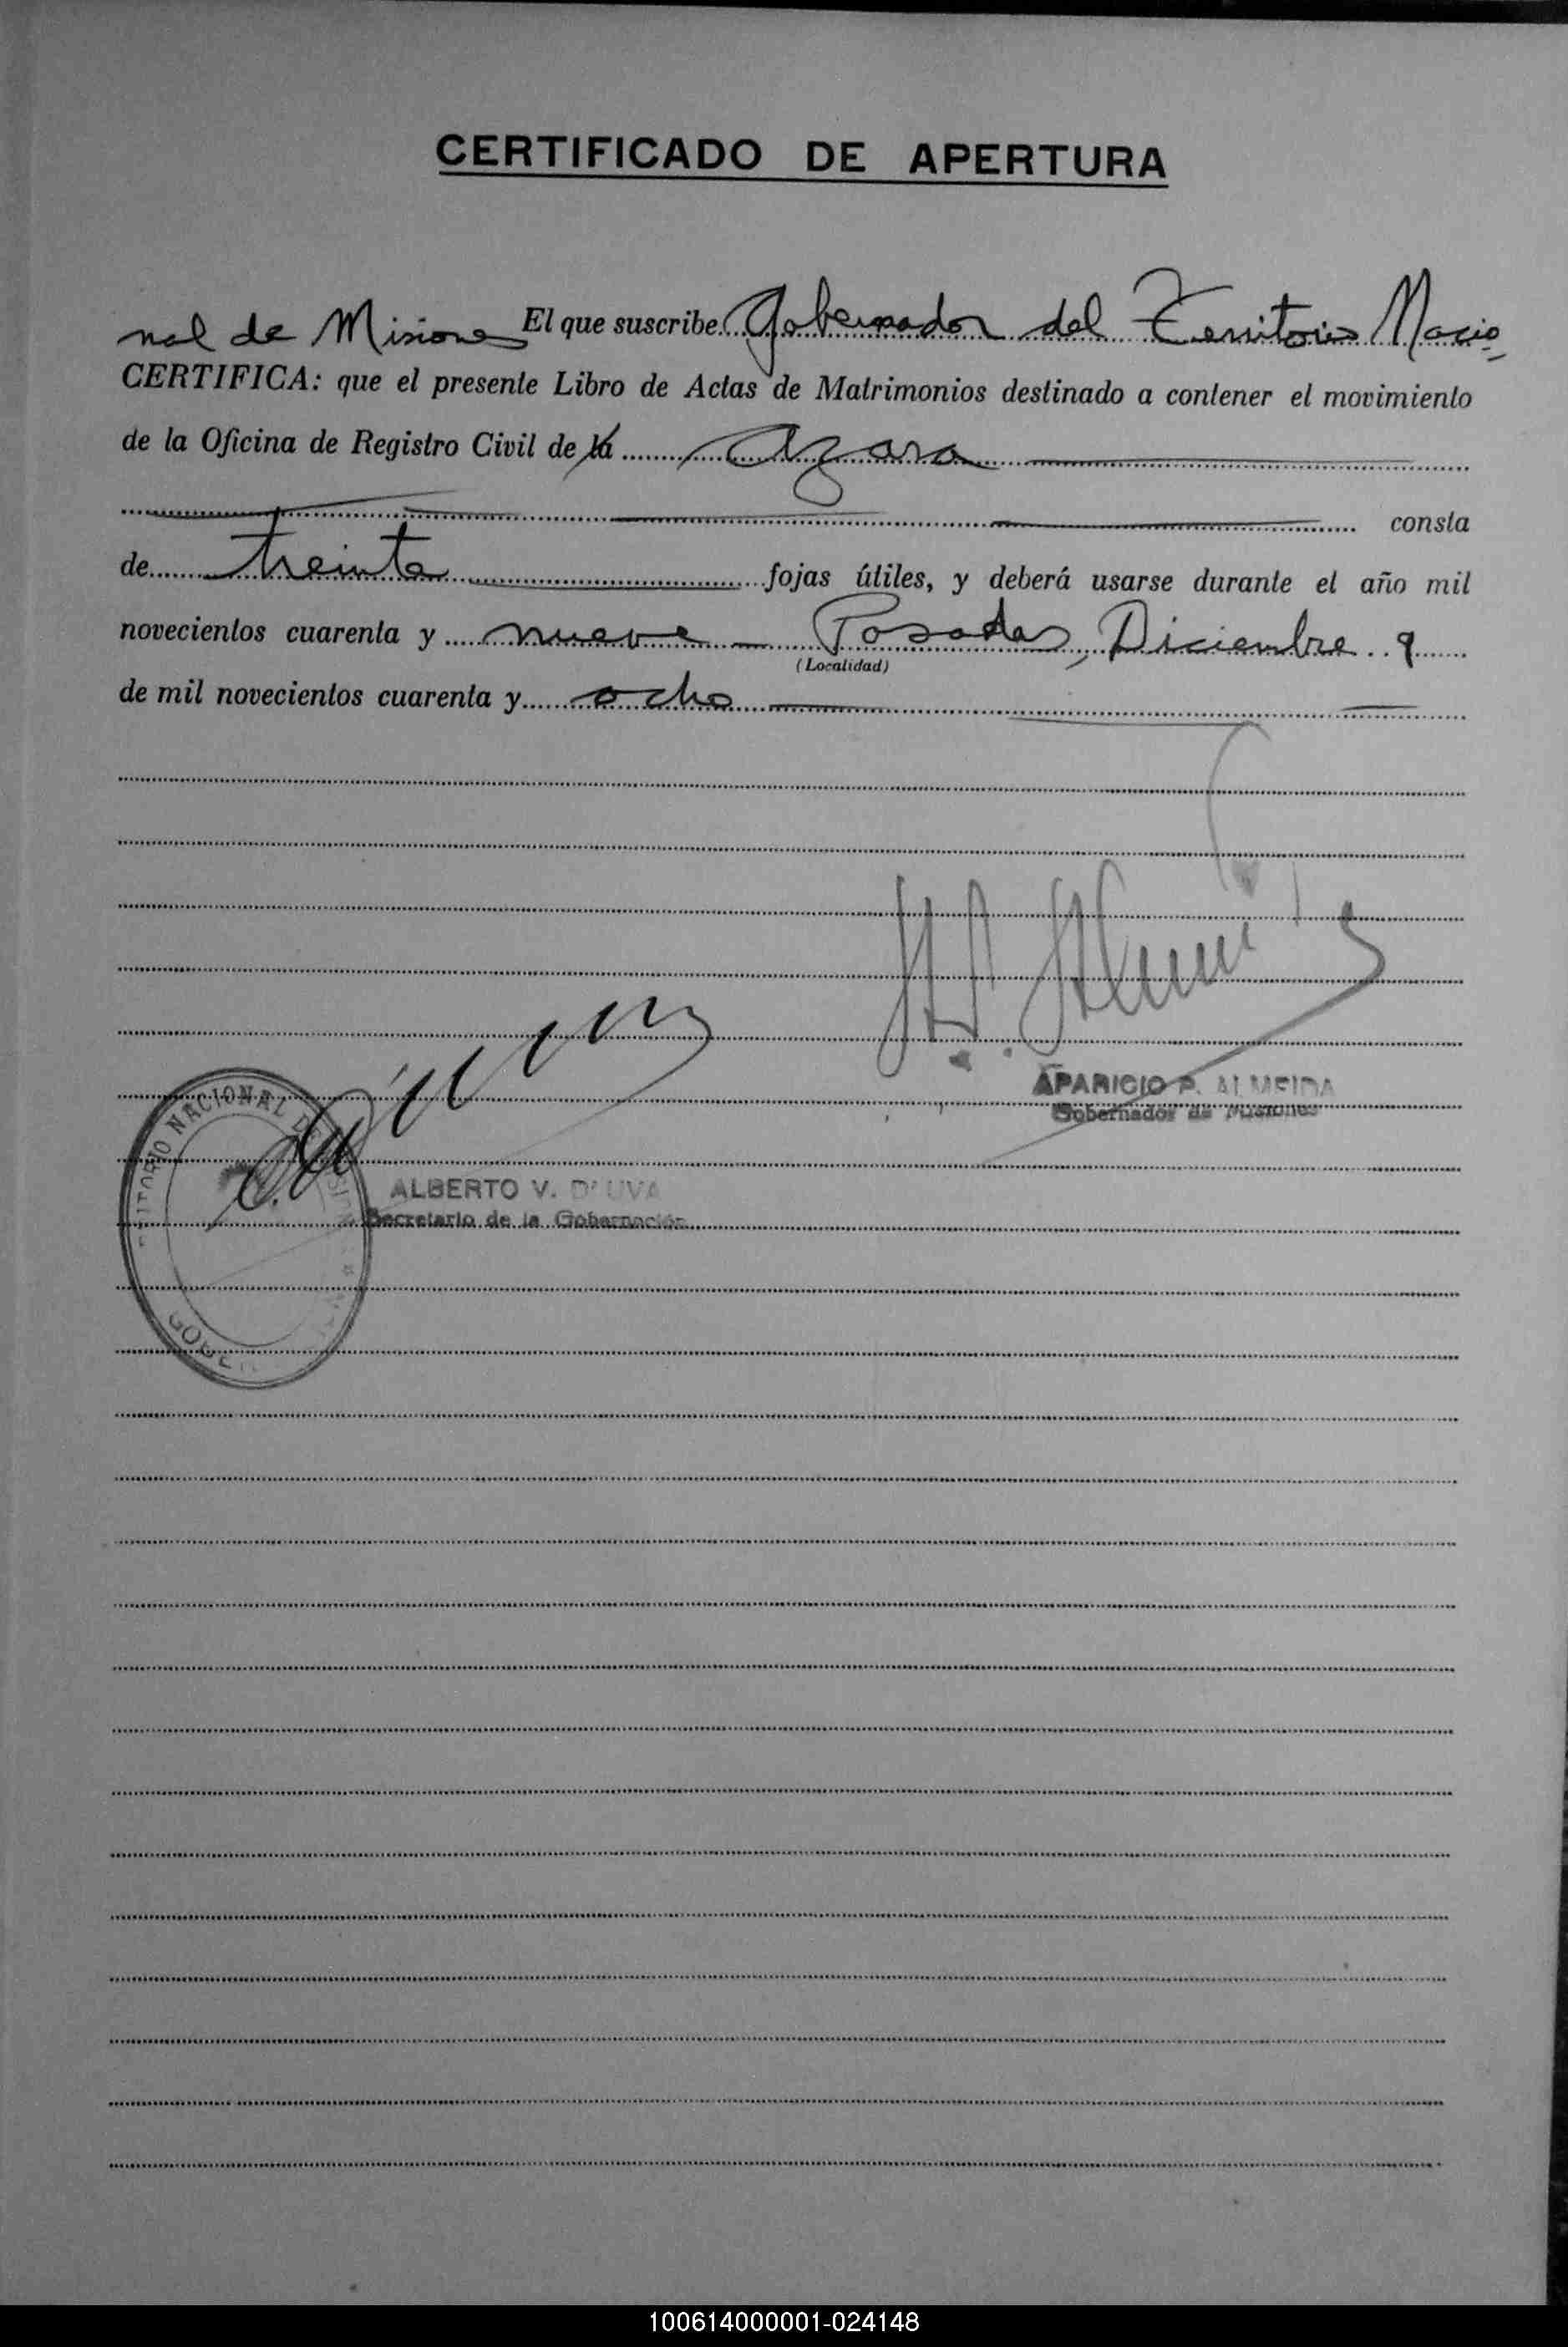 CERTIFICADO DE APERTURA
El que suscribe Gobernador del Territorio Nacio-
nal de Misiones
CERTIFICA: que el presente Libro de Actas de Matrimonios destinado a contener el movimiento
de la Oficina de Registro Civil de la Azara
consta
de treinta fojas útiles, y deberá usarse durante el año mil
novecientos cuarenta y nueve Posadas, Diciembre 9
(Localidad)
de mil novecientos cuarenta y ocho
APARICIO P. ALMEIDA
Gobernador de Misiones
NACIONAL DE
ALBERTO V. D'UVA
Secretario de la Gobernación
100614000001-024148